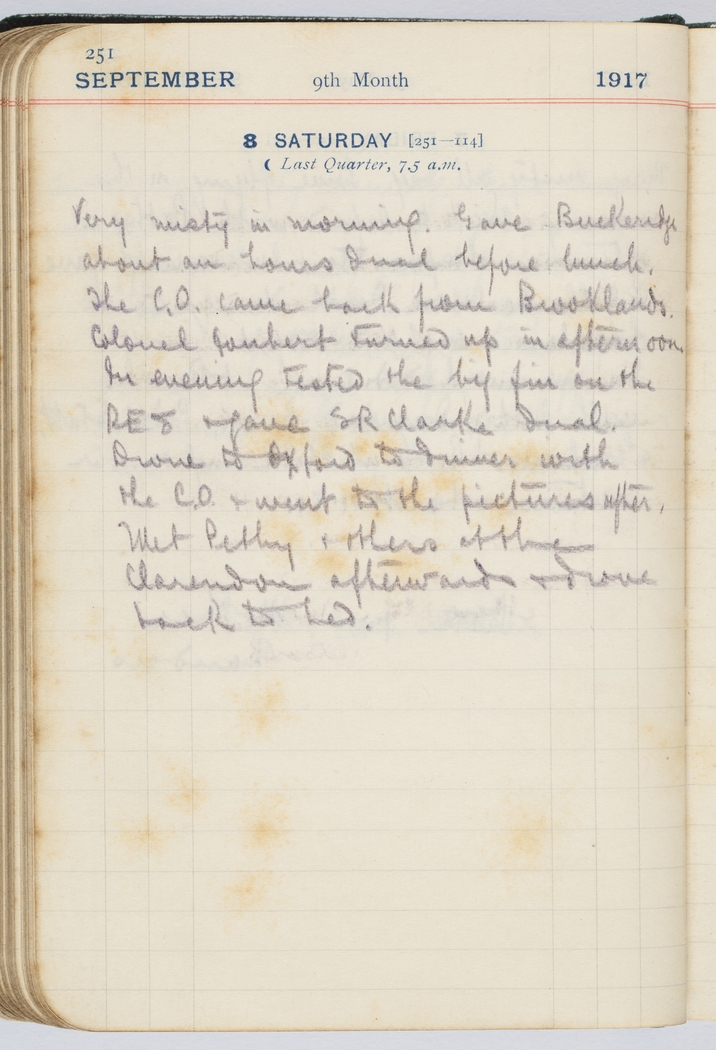 251
SEPTEMBER 9th Month 1917
8 SATURDAY [251—114]
☾ Last Quarter, 7.5 a.m.
Very misty in morning. Gave Buckeridge
about an hours dual before lunch.
The C.O. came back from Brooklands.
Colonel Joubert turned up in afternoon.
In evening tested the big fin on the
RE8 & gave SR Clarke dual.
Drove to Oxford to dinner with
the C.O. & went to the pictures after.
Met & others at the
Clarendon afterwards & drove
back to bed.